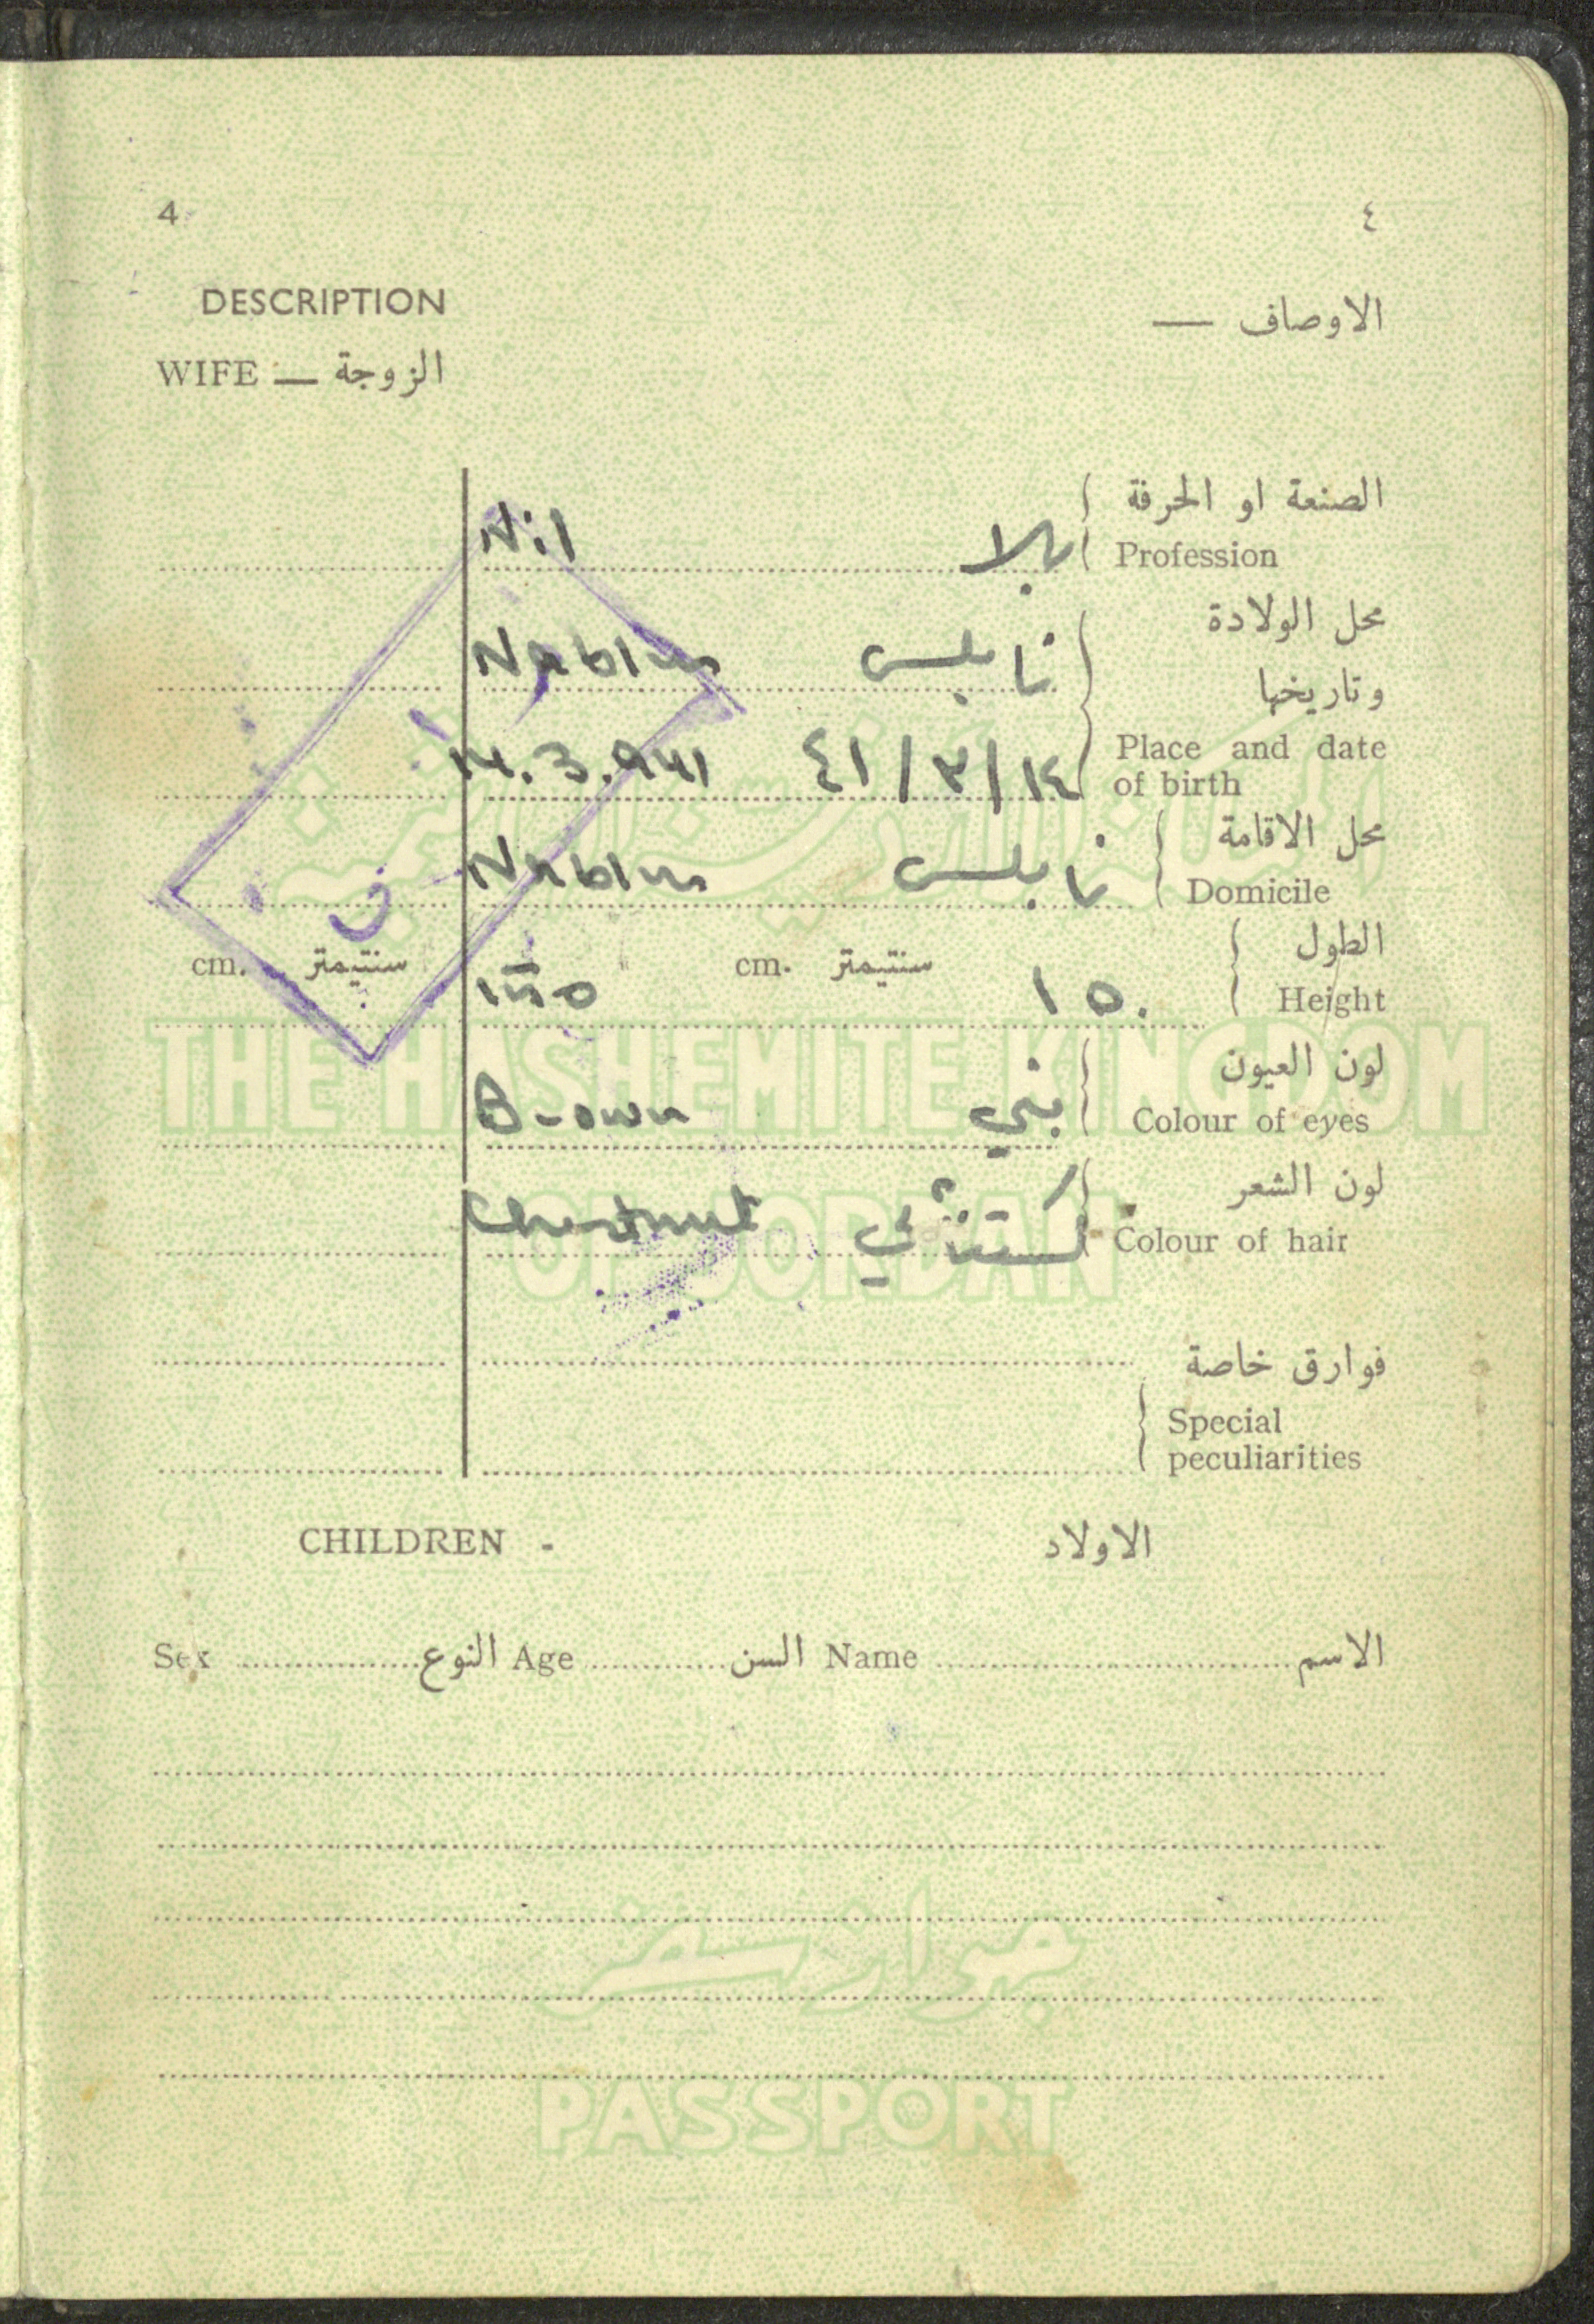 4 ٤
DESCRIPTION الاوصاف —
WIFE — الزوجة
الصنعة او الحرفة
Nil بلا Profession
محل الولادة
Nablus نابلس وتاريخها
14.3.941 ٤١/٣/١٤ Place and date
of birth
محل الاقامة
Nablus نابلس Domicile
الطول
cm. سنتيمتر cm. سنتيمتر
150 ١٥٠ Height
لون العيون
Brown بني Colour of eyes
لون الشعر
Chestnut كستنائي Colour of hair
فوارق خاصة
Special
peculiarities
CHILDREN - الاولاد
Sex النوع Age السن Name الاسم
المملكة الاردنية الهاشمية
THE HASHEMITE KINGDOM
OF JORDAN
جواز سفر
PASSPORT